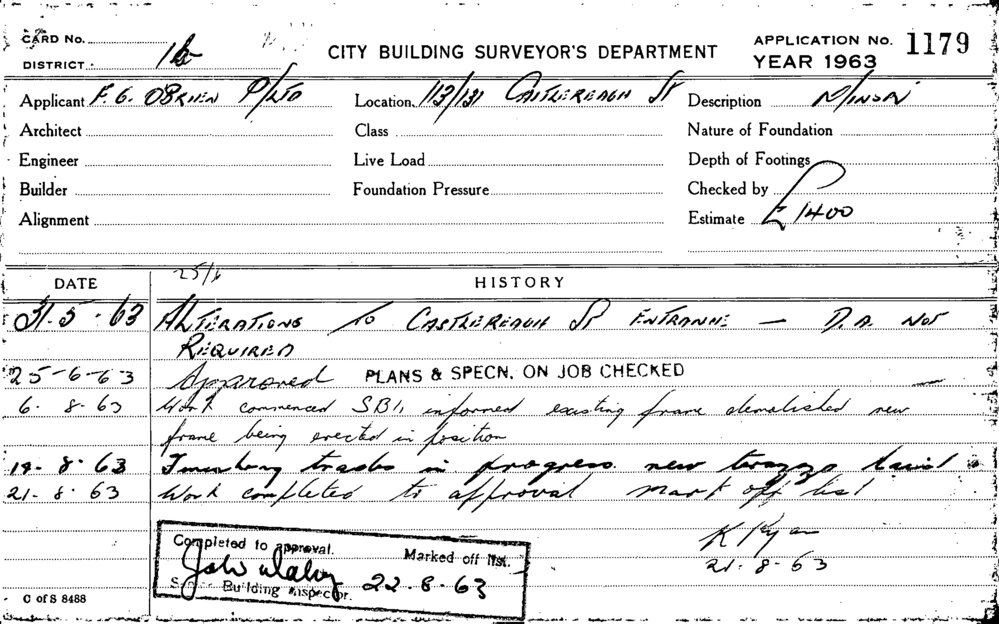 CARD No.
DISTRICT 16
CITY BUILDING SURVEYOR'S DEPARTMENT
APPLICATION No. 1179
YEAR 1963
Applicant F. G. O'BRIEN P/LTD
Location 113/131 CASTLEREAGH ST
Description MINOR
Architect
Class
Nature of Foundation
Engineer
Live Load
Depth of Footings
Builder
Foundation Pressure
Checked by
Alignment
Estimate £1400
DATE
25/6
HISTORY
31.5.63 ALTERATIONS TO CASTLEREAGH ST ENTRANCE — D.A. NOT
REQUIRED
25-6-63 Approved PLANS & SPECN. ON JOB CHECKED
6. 8. 63 Work commenced SBI, informed existing frame demolished new
frame being erected in position
19. 8. 63 trades in progress. new
21. 8. 63 Work completed to approval mark off list
K Ryan
21. 8. 63
Completed to approval. Marked off list.
22. 8. 63
Senior Building Inspector.
C of S 8488